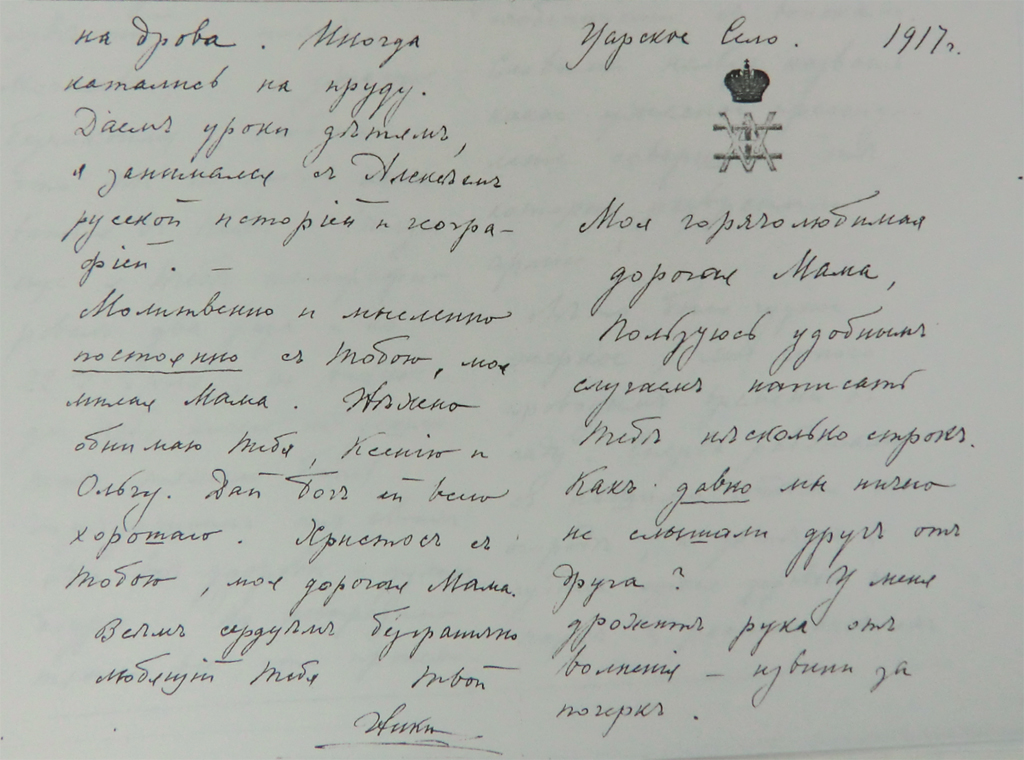 на дрова. Иногда
катались на пруду.
Даемъ уроки дѣтямъ,
я занимался съ Алексѣемъ
русской исторіей и геогра-
фіей. —
Молитвенно и мысленно
постоянно съ Тобою, моя
милая Мама. Нѣжно
обнимаю Тебя, Ксенію и
Ольгу. Дай Богъ ей всего
хорошаго. Христосъ съ
Тобою, моя дорогая Мама.
Всѣмъ сердцемъ безгранично
любящій Тебя Твой
Ники
Царское Село. 1917 г.
Моя горячолюбимая
дорогая Мама,
Пользуюсь удобнымъ
случаемъ написать
Тебѣ нѣсколько строкъ.
Какъ давно мы ничего
не слышали другъ отъ
друга? У меня
дрожитъ рука отъ
волненія – извини за
почеркъ.